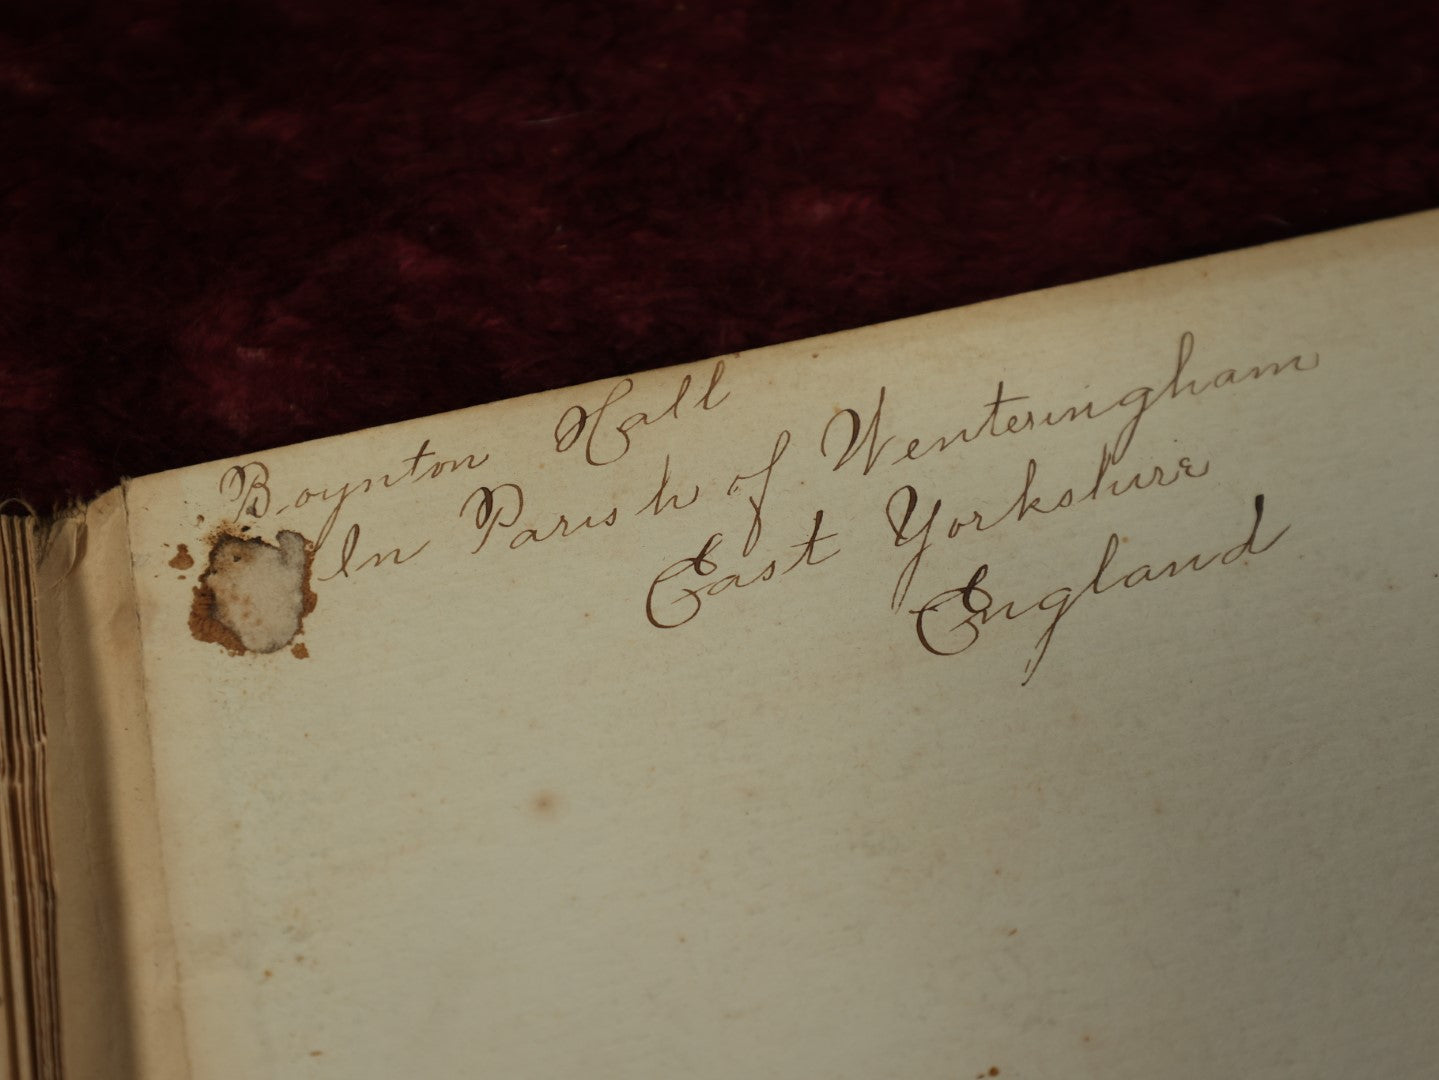 Boynton Hall
In Parish of Wenteringham
East Yorkshire
England